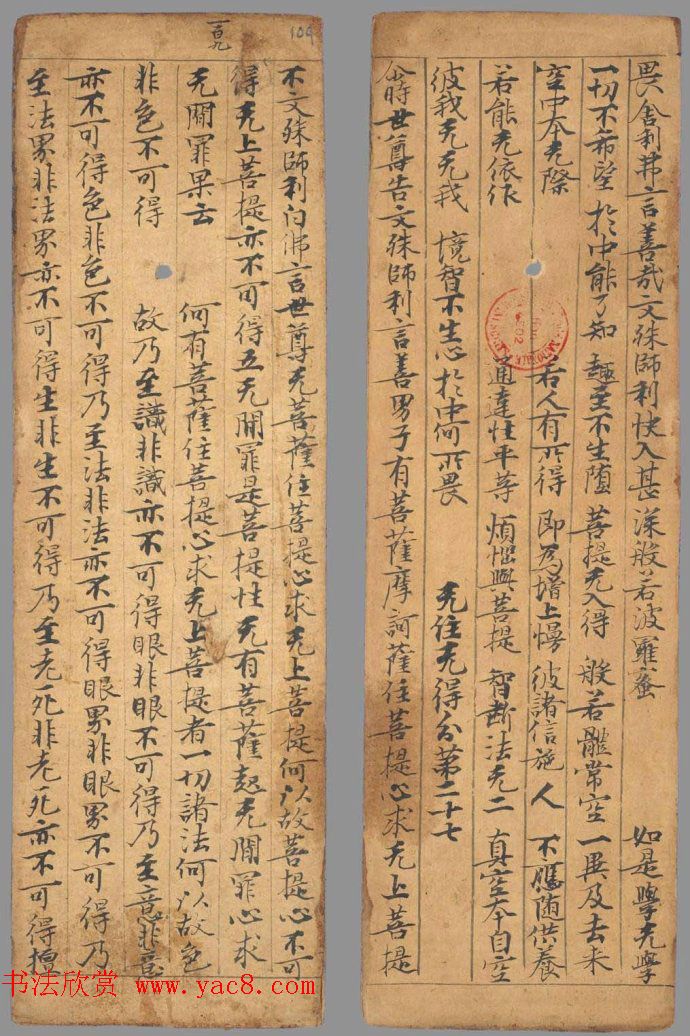 畏舍利弗言善哉文殊師利快入甚深般若波羅蜜 如是學无學
一切不希望 於中能了知 趣至不生墮 菩提无入得 般若體常空 一異及去来
空中本无際 若人有所得 即為增上慢 彼諸信施人 不 随供養
若能无依作 通達性平等 煩惱與菩提 智断法无二 真空本自空
彼我无无我 境智不生心 於中何所畏 无住无得分第二十七
尒時世尊告文殊師利言善男子有菩薩摩訶薩住菩提心求无上菩提
一百九
109
不文殊師利白佛言世尊无菩薩住菩提心求无上菩提何以故菩提心不可
得无上菩提亦不可得五无間罪是菩提性无有菩薩起无間罪心求
无間罪果云 何有菩薩住菩提心求无上菩提者一切諸法何以故色
非色不可得 故乃至識非識亦不可得眼非眼不可得乃至意非意
亦不可得色非色不可得乃至法非法亦不可得眼界非眼界不可得乃
至法界非法界亦不可得生非生不可得乃至老死非老死亦不可得檀
书法欣赏 www.yac8.com